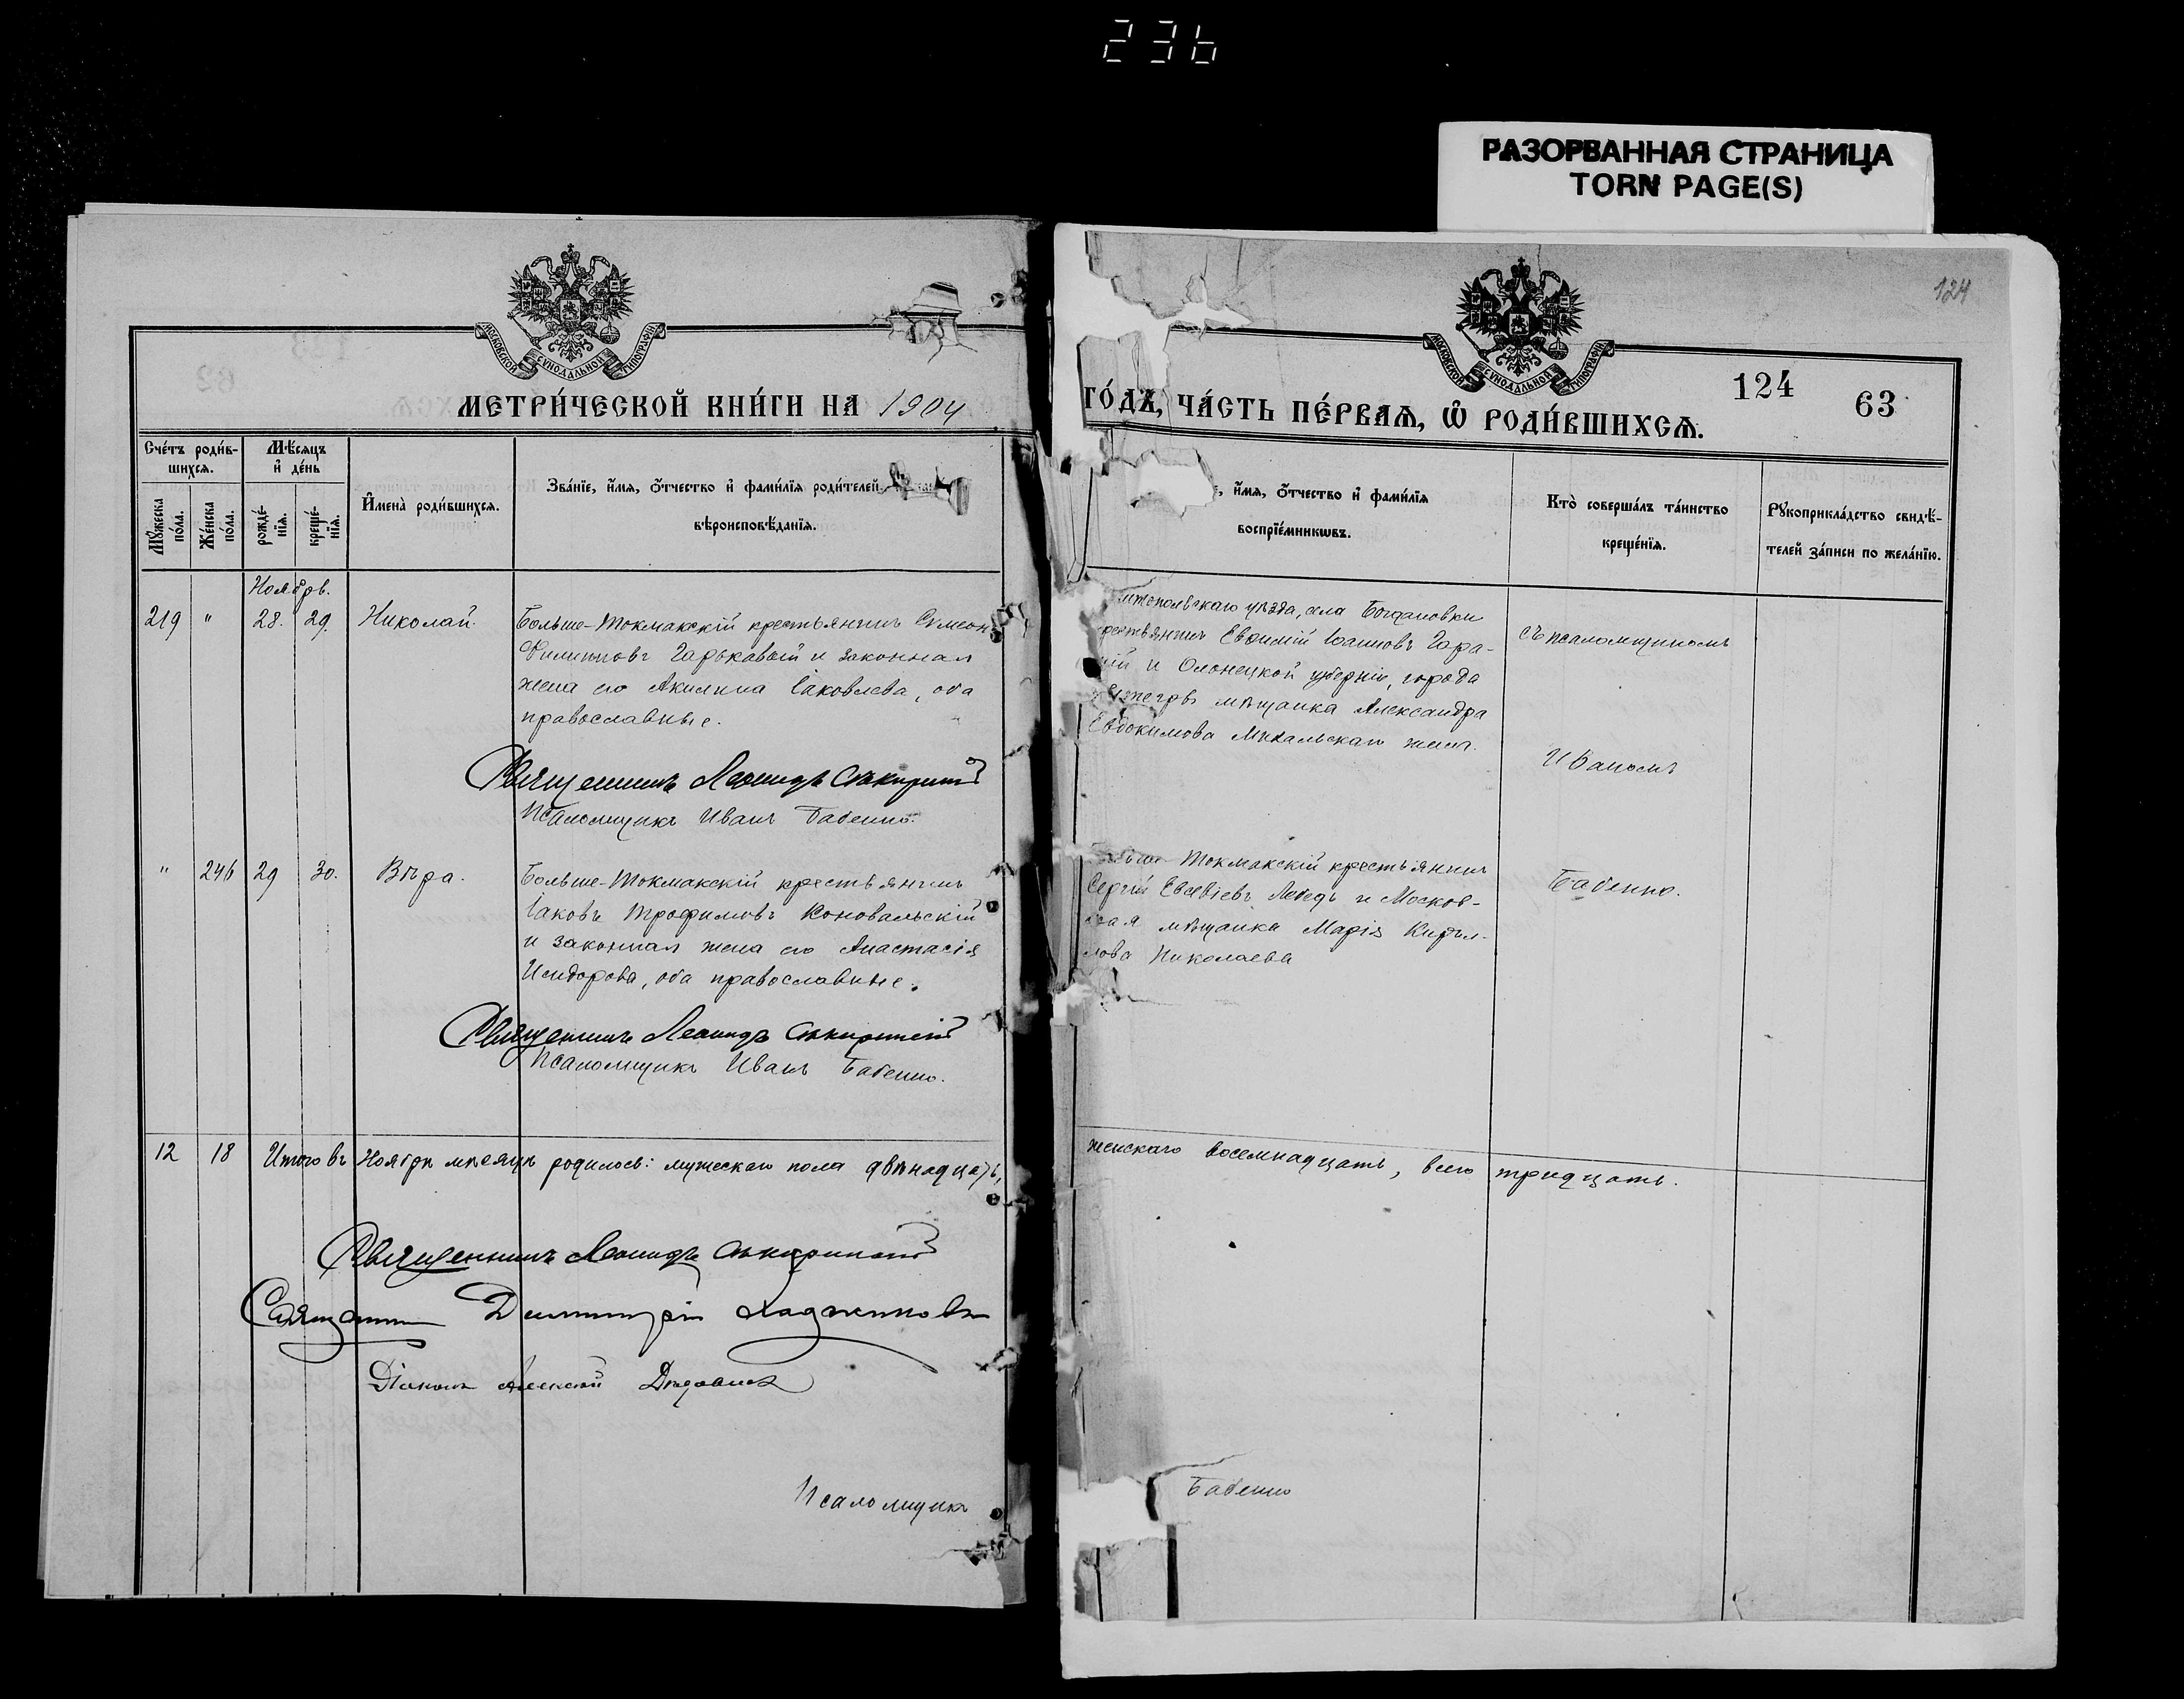 236
РАЗОРВАННАЯ СТРАНИЦА
TORN PAGE(S)
124
МОСКОВСКОЙ СѴНОДАЛЬНОЙ ТИПОГРАФІИ
МОСКОВСКОЙ СѴНОДАЛЬНОЙ ТИПОГРАФІИ
МЕТРИ́ЧЕСКОЙ КНИ́ГИ НА 1904
ГО́ДЪ, ЧА́СТЬ ПЕ́РВАѦ, Ѡ҆ РОДИ́ВШИХСѦ.
124
63
Сче́тъ роди́в-
шихся.
Мѣ́сяцъ
и҆ де́нь
Мꙋ́жеска
по́ла.
Же́нска
по́ла.
рожде́-
нїя.
креще́-
нїя.
И҆мена̀ роди́вшихся.
Зва́нїе, и҆́мя, ѻ҆́тчество и҆ фами́лїя роди́телей
вѣроисповѣ́данїя.
и҆́мя, ѻ҆́тчество и҆ фами́лїя
воспрїе́мникѡвъ.
Кто̀ соверша́лъ та́инство
креще́нїя.
Рꙋкоприкла́дство свидѣ́-
телей за́писи по жела́нїю.
Ноябрь.
219 " 28. 29. Николай.
Больше-Токмакскій крестьянинъ Симеонъ
Филипповъ Гарькавый и законная
жена его Акилина Іаковлева, оба
православные.
Священникъ Леонидъ
Псаломщикъ Иванъ Бабенко.
уѣзда, села Богдановки
крестьянинъ Евфимій Іоанновъ Гора-
и Олонецкой губерніи, города
мѣщанка Александра
Евдокимова
съ псаломщикомъ
Иваномъ
Бабенко.
" 246 29 30. Вѣра.
Больше-Токмакскій крестьянинъ
Іаковъ Трофимовъ Коновальскій
и законная жена его Анастасія
Исидорова, оба православные.
Священникъ Леонидъ
Псаломщикъ Иванъ Бабенко.
Токмакскій крестьянинъ
Сергій Евсевіевъ Лебедь и Москов-
ская мѣщанка Марія Кирил-
лова Николаева
12 18 Итого въ Ноябрѣ мѣсяцѣ родилось: мужескаго пола двѣнадцать,
женскаго восемнадцать, всего тридцать.
Священникъ Леонидъ
Священникъ Димитрій Хаджиновъ
Діаконъ Алексій
Псаломщикъ
Бабенко